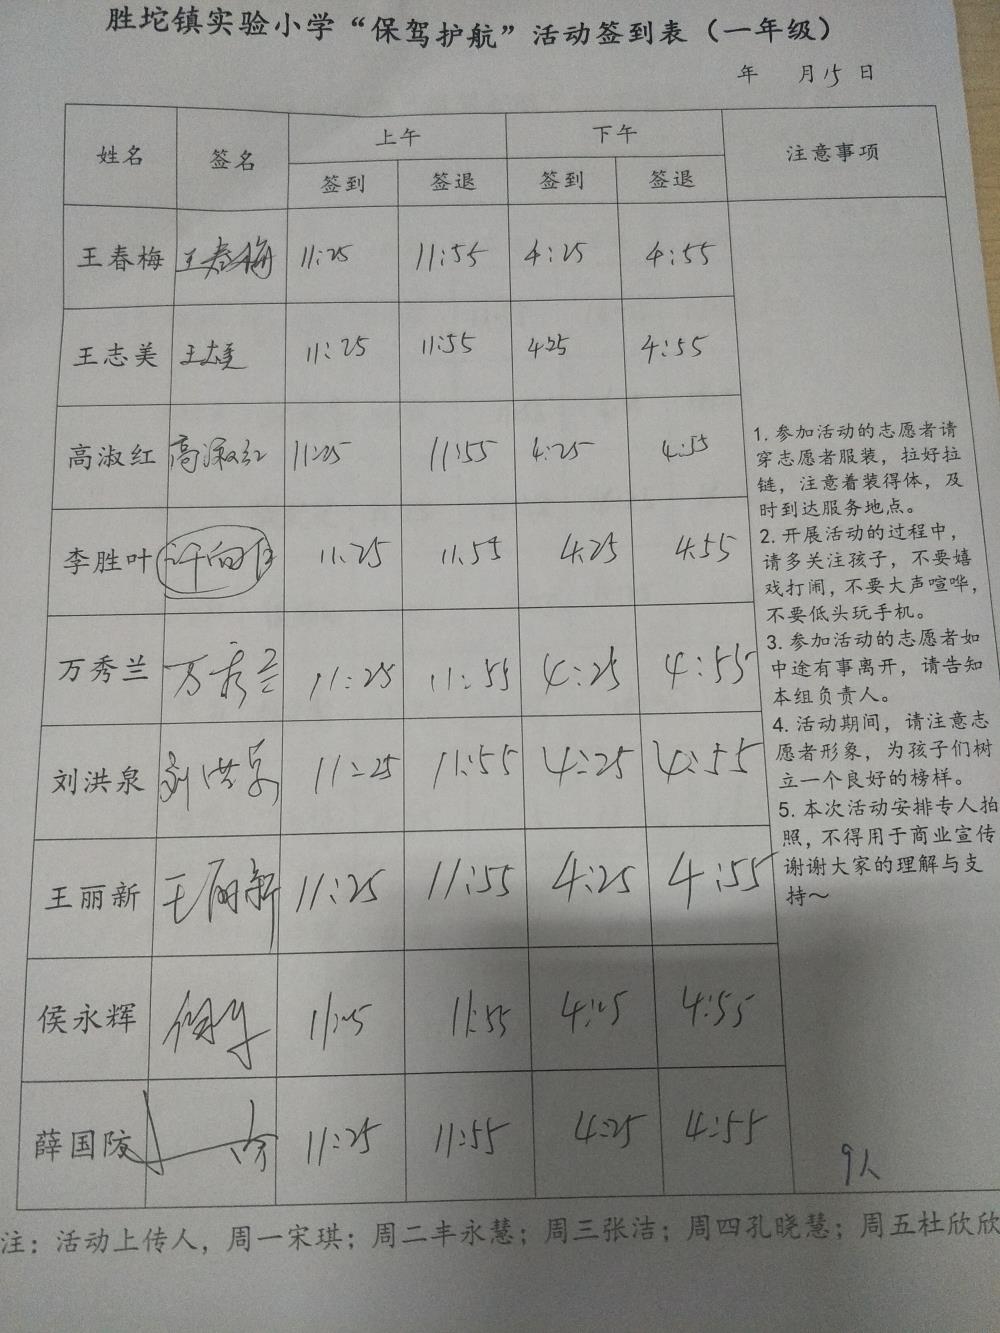 胜坨镇实验小学“保驾护航”活动签到表（一年级）
年 月15日
姓名 签名 上午 下午 注意事项
签到 签退 签到 签退
王春梅 王春梅 11:25 11:55 4:25 4:55
王志美 11:25 11:55 425 4:55
高淑红 高淑红 11:25 11:55 4:25 4:55
李胜叶 11:25 11:55 4:25 4:55
万秀兰 万秀兰 11:25 11:55 4:25 4:55
刘洪泉 刘洪泉 11:25 11:55 4:25 4:55
王丽新 王丽新 11:25 11:55 4:25 4:55
侯永辉 11:25 11:55 4:25 4:55
薛国陵 11:25 11:55 4:25 4:55
1. 参加活动的志愿者请
穿志愿者服装，拉好拉
链，注意着装得体，及
时到达服务地点。
2. 开展活动的过程中，
请多关注孩子，不要嬉
戏打闹，不要大声喧哗，
不要低头玩手机。
3. 参加活动的志愿者如
中途有事离开，请告知
本组负责人。
4. 活动期间，请注意志
愿者形象，为孩子们树
立一个良好的榜样。
5. 本次活动安排专人拍
照，不得用于商业宣传
谢谢大家的理解与支
持～
9人
注：活动上传人，周一宋琪；周二丰永慧；周三张洁；周四孔晓慧；周五杜欣欣